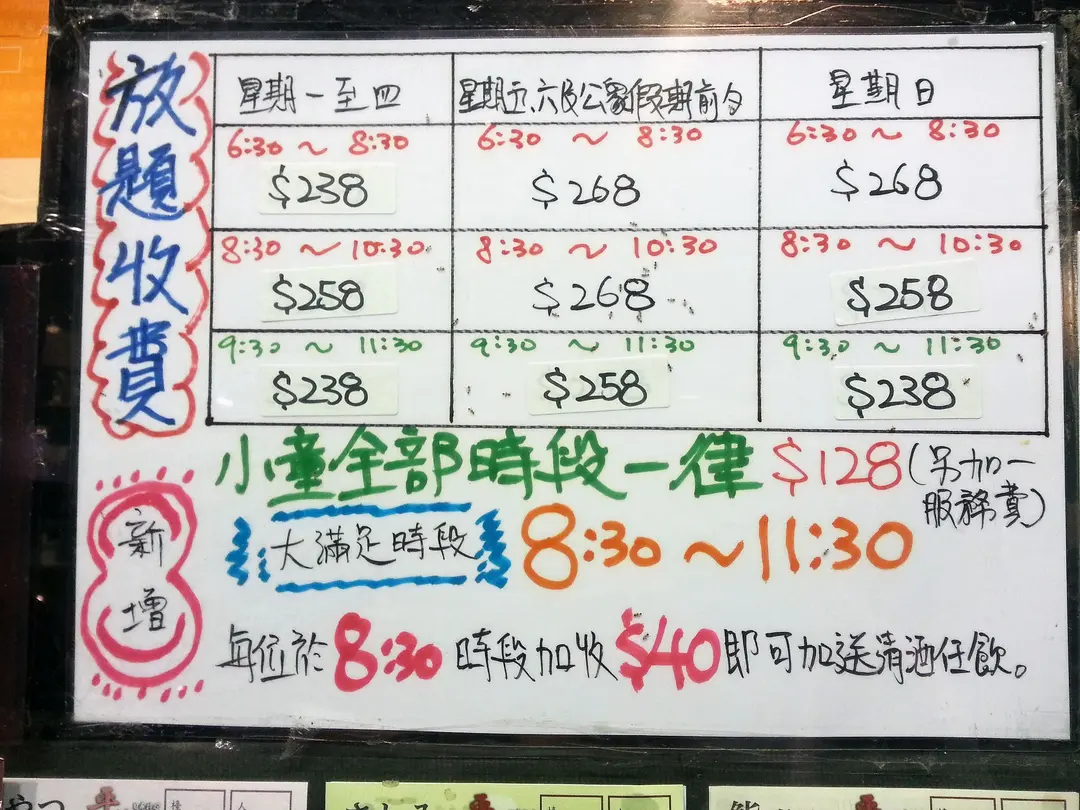 放題收費
星期一至四
星期五、六及公眾假期前夕
星期日
6:30 ~ 8:30
$238
6:30 ~ 8:30
$268
6:30 ~ 8:30
$268
8:30 ~ 10:30
$258
8:30 ~ 10:30
$268
8:30 ~ 10:30
$258
9:30 ~ 11:30
$238
9:30 ~ 11:30
$258
9:30 ~ 11:30
$238
小童全部時段一律 $128 (另加一
服務費)
新增
大滿足時段 8:30 ~ 11:30
每位於 8:30 時段加收 $40 即可加送清酒任飲。